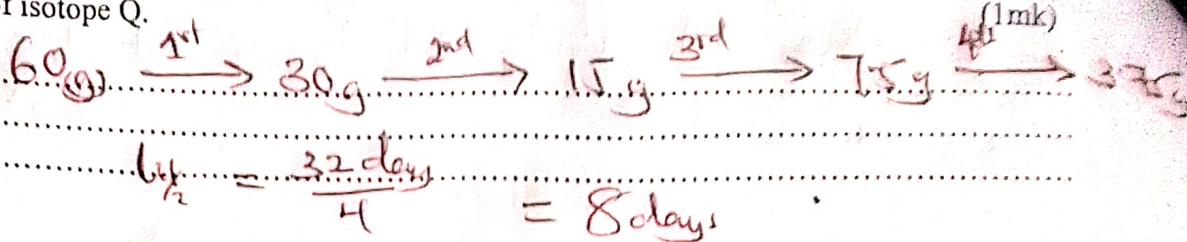 isotope Q.
(1mk)
60(g) 1st → 30g 2nd → 15g 3rd → 7.5g 4th → 3.75g
t1/2 = 32 days / 4 = 8 days